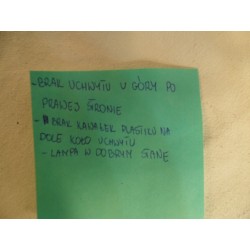 - BRAK UCHWYTU U GÓRY PO
PRAWEJ STRONIE
- BRAK KAWAŁEK PLASTIKU NA
DOLE KOŁO UCHWYTU
- LAMPA W DOBRYM STANIE